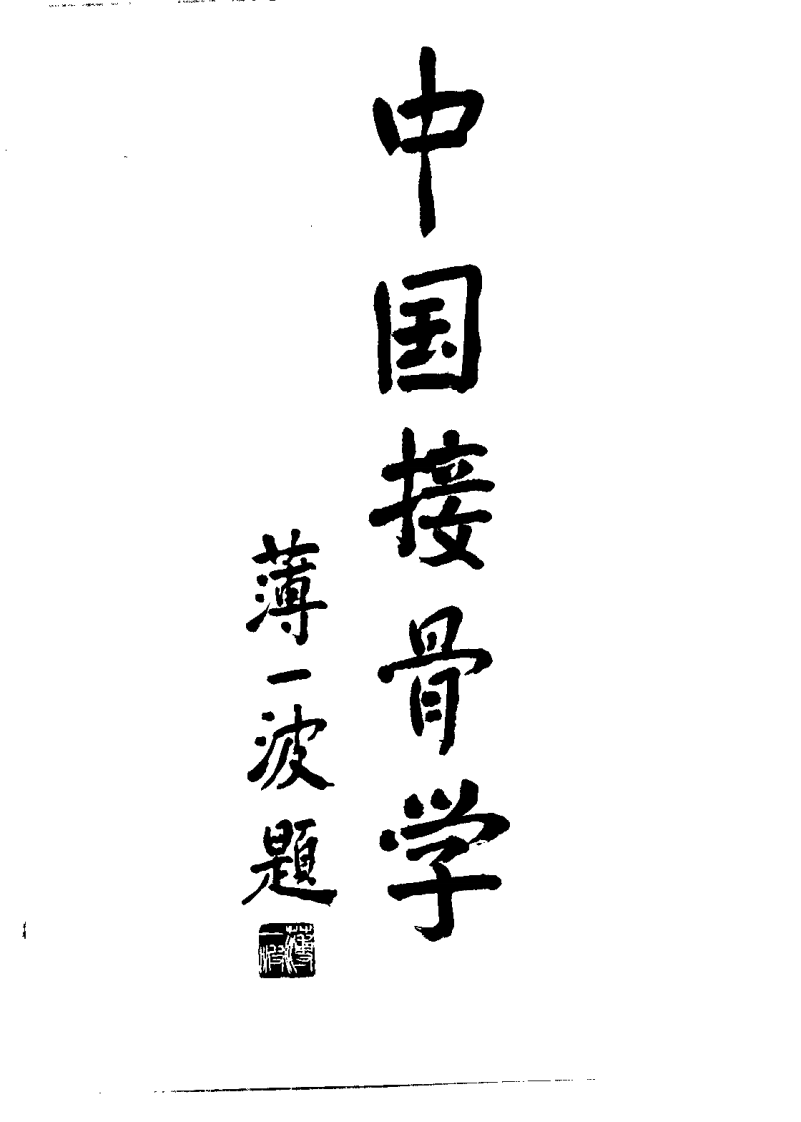 中国接骨学
薄一波题
薄一波